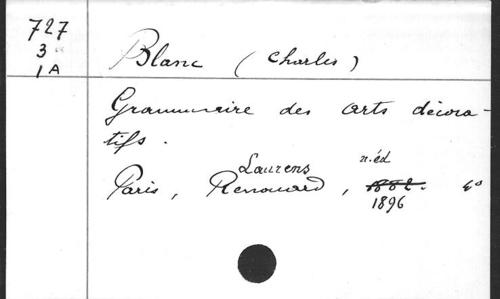 727
3
1A
Blanc (Charles)
Grammaire des arts décora-
tifs.
Laurens n. éd
Paris, Renouard, 1882. 4°
1896